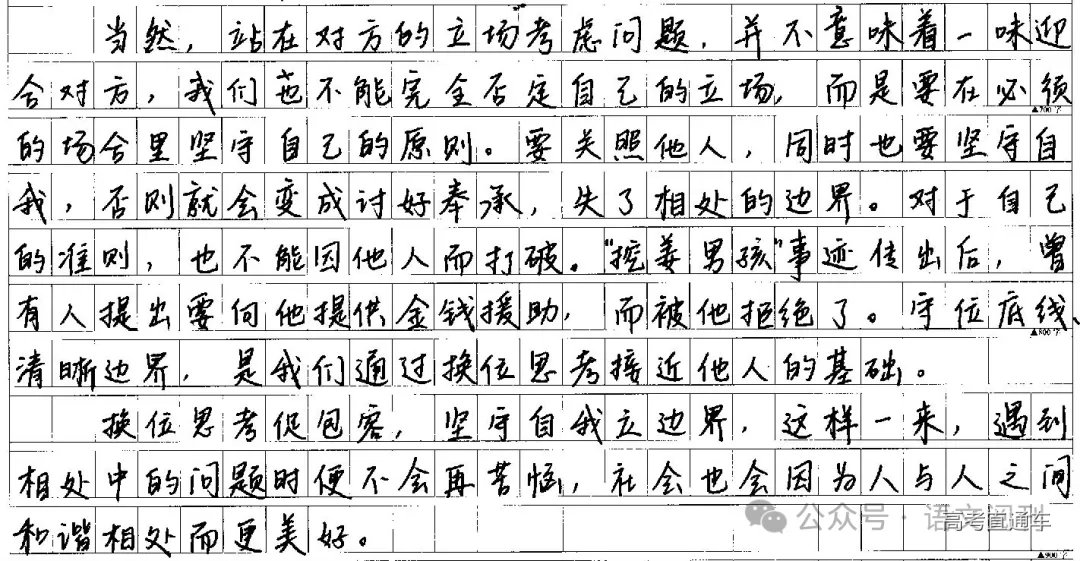 当然，站在对方的立场考虑问题，并不意味着一味迎
合对方，我们也不能完全否定自己的立场，而是要在必须
▲700字
的场合里坚守自己的原则。要关照他人，同时也要坚守自
我，否则就会变成讨好奉承，失了相处的边界。对于自己
的准则，也不能因他人而打破。“挖姜男孩”事迹传出后，曾
有人提出要向他提供金钱援助，而被他拒绝了。守位底线、
▲800字
清晰边界，是我们通过换位思考接近他人的基础。
换位思考促包容，坚守自我立边界，这样一来，遇到
相处中的问题时便不会再苦恼，社会也会因为人与人之间
和谐相处而更美好。
公众号·语文
高考直通车
▲900字